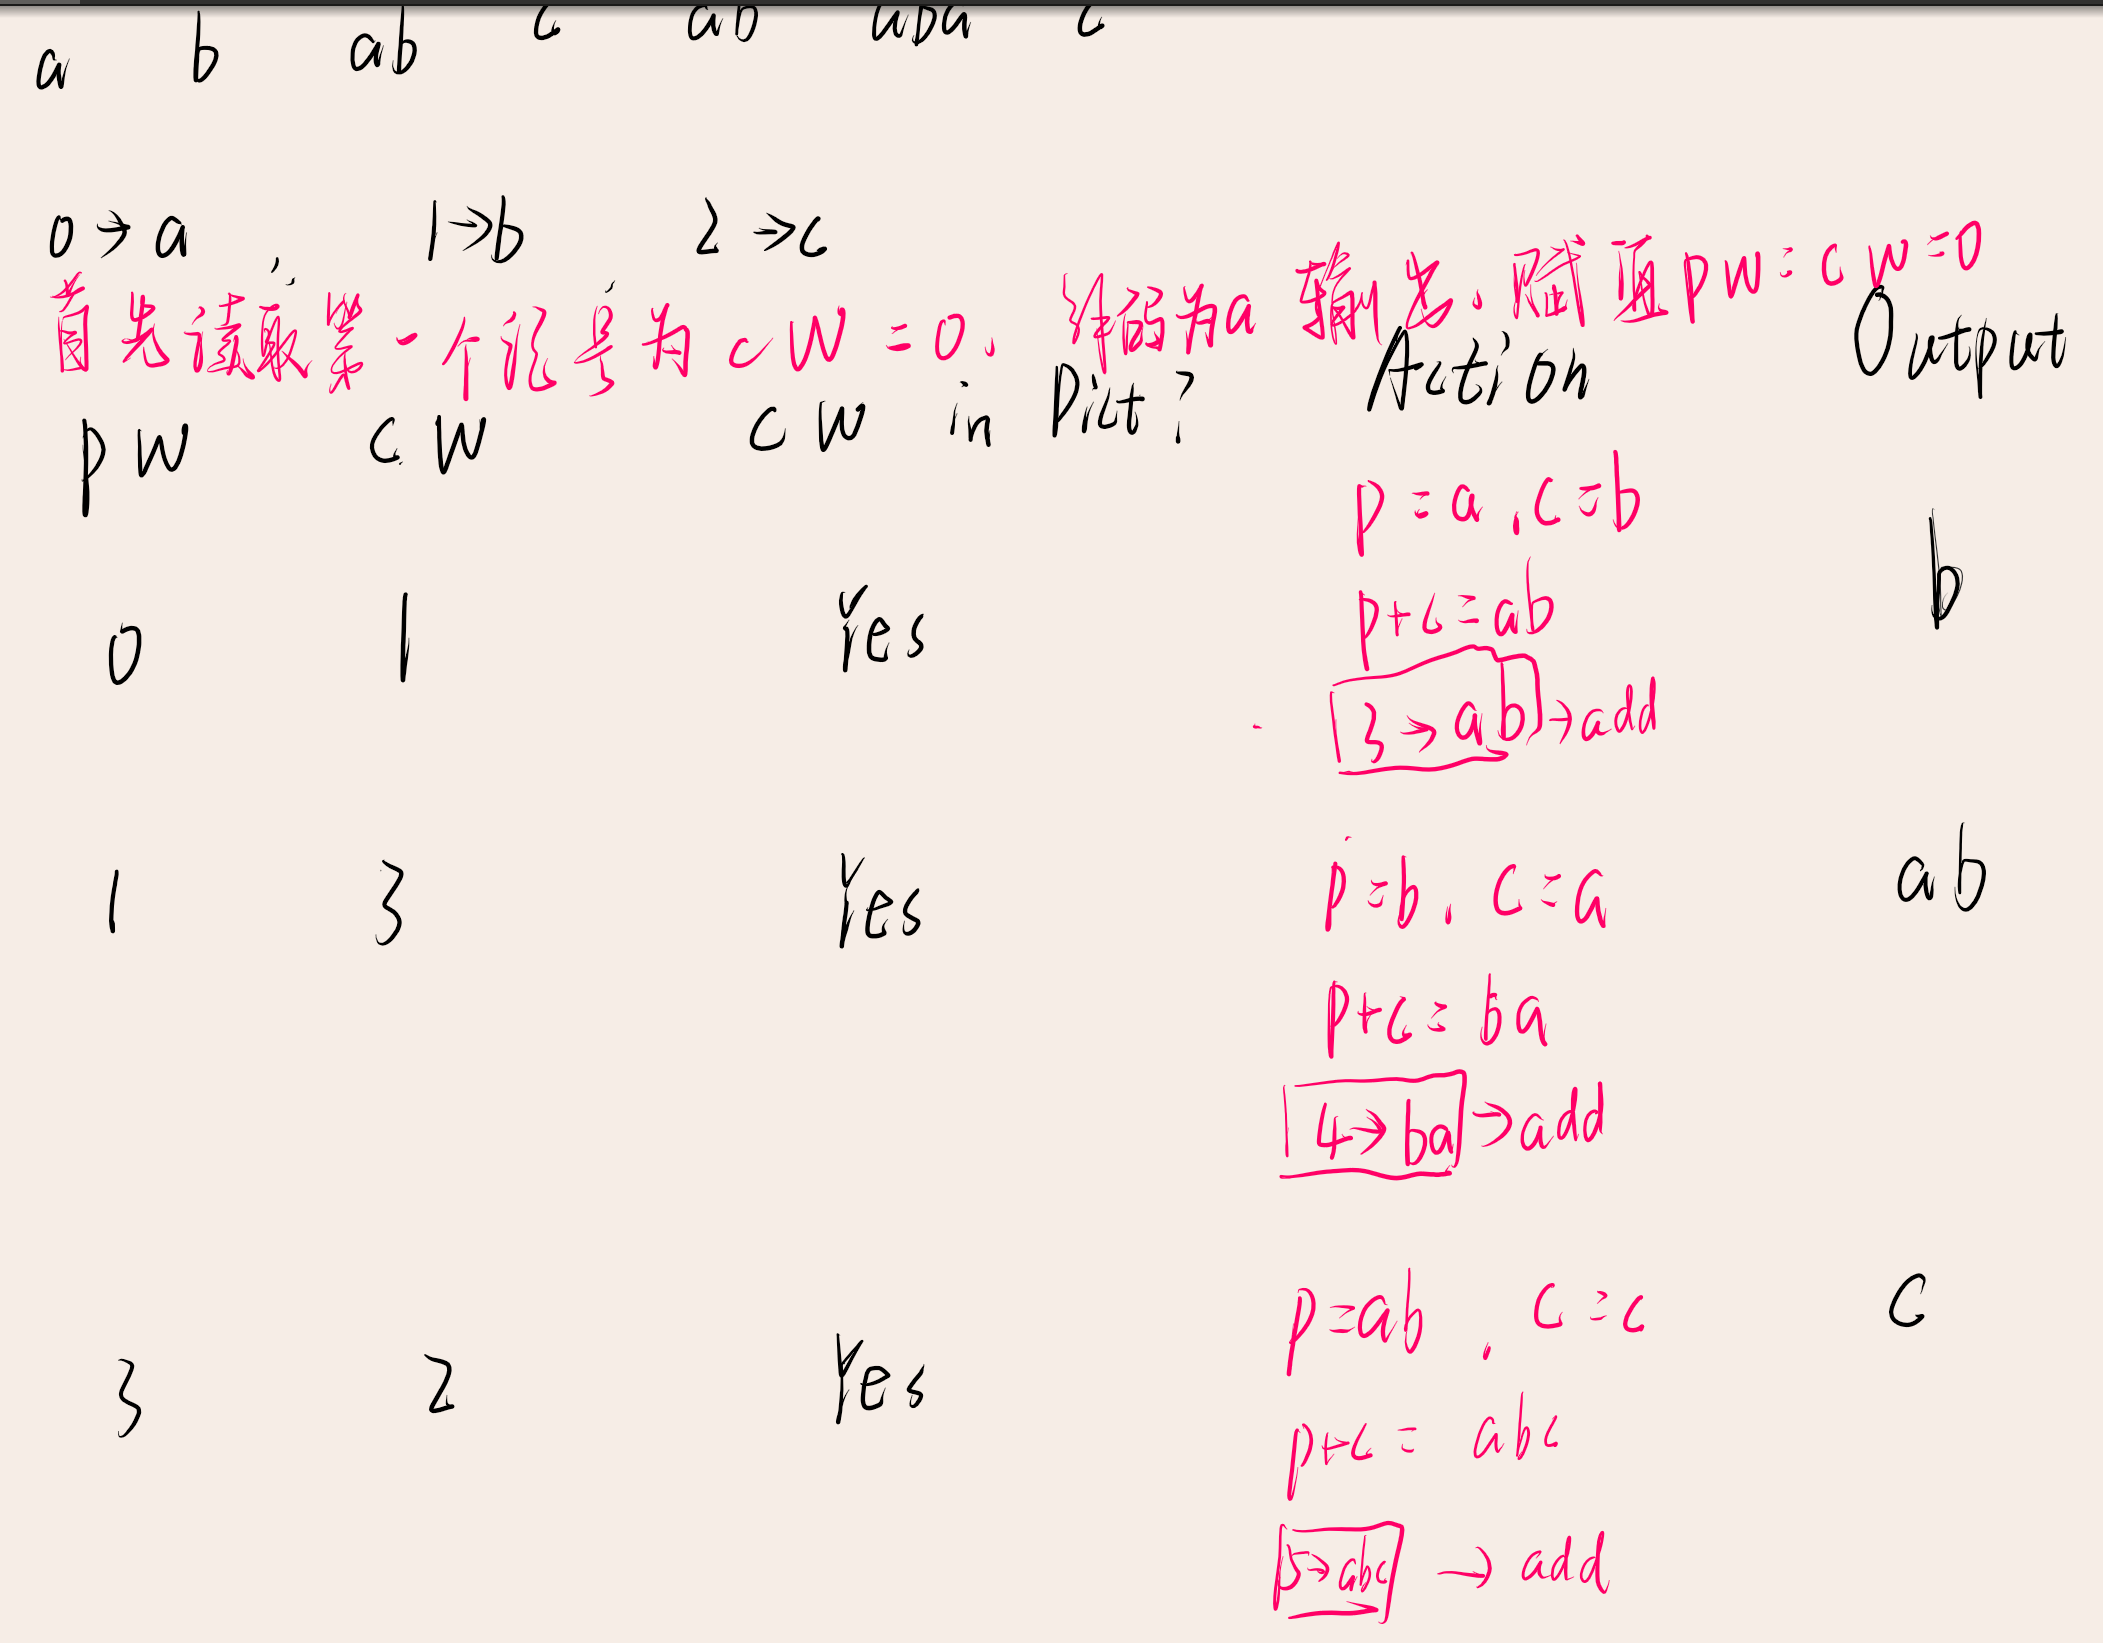 a b ab c ab aba c
0→a , 1→b , 2→c
首先读取第一个记号为cW=0, 译码为a 输出, 赋值pW=cW=0
pW cW cW in Dict? Action Output
p=a, c=b
0 1 Yes p+c=ab b
3→ab →add
1 3 Yes p=b, c=a ab
p+c=ba
4→ba →add
p=ab, c=c c
3 2 Yes p+c=abc
5→abc →add